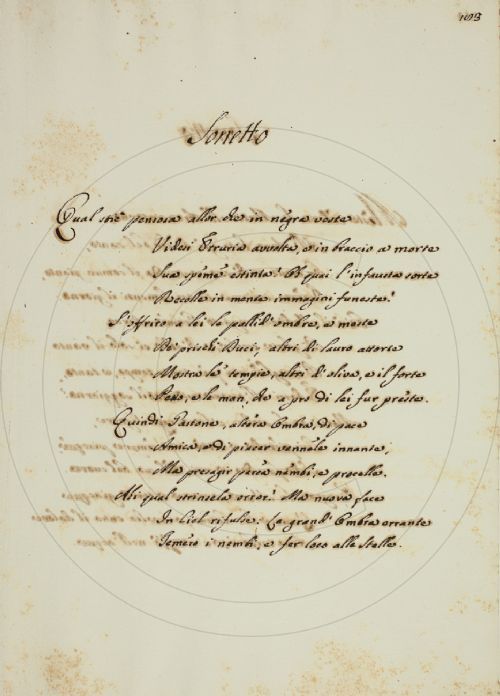 193
Sonetto
Qual stiè pensosa allor che in negra veste
Videsi Etruria avvolta, e in braccio a morte
Sua speme estinta! Oh quai l'infausta sorte
Recolle in mente immagini funeste!
S'offriro a lei le pallid' ombre, e meste
De' prischi Duci; altri di lauro attorte
Mostra le tempie, altri d'oliva, e il forte
Petto, e le man, che a pro di lei fur preste.
Quindi Gastone, altera Ombra, di pace
Amica, e di piacer sennale innante,
Ma presagir parea nembi, e procelle.
Ahi qual strinsela orror! Ma nuova face
In Ciel rifulse: Le grand' Ombre errante
Temero i nembi, e fer loco alle Stelle.